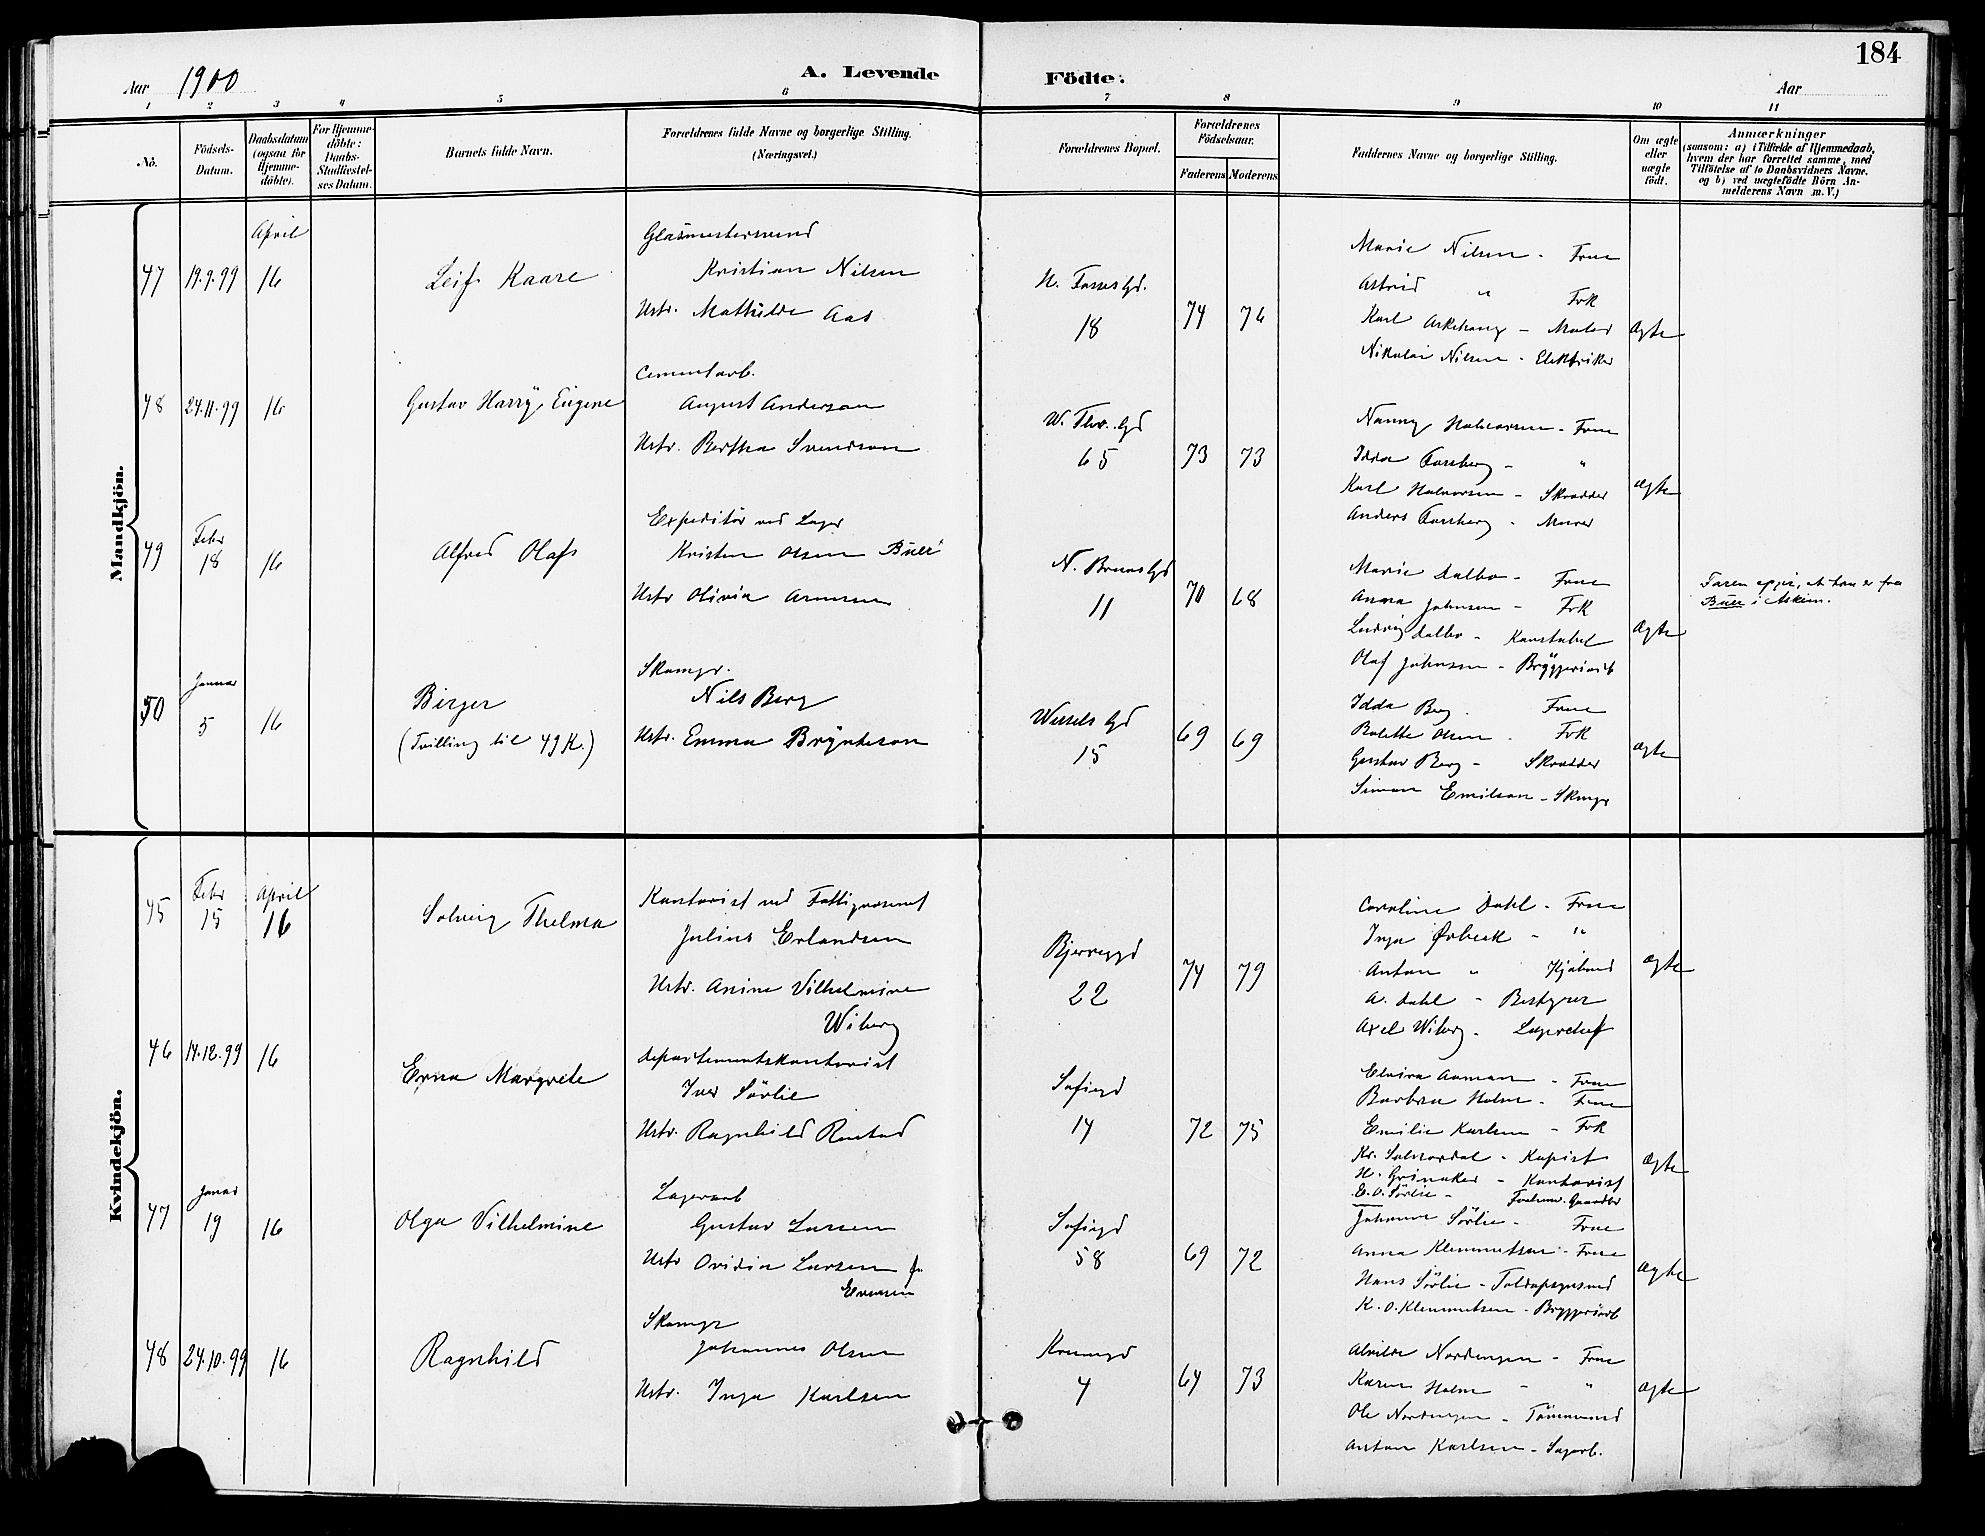 184
Aar 1900
A. Levende Födte.
Aar
1 2 3 4 5 6 7 8 9 10 11
No.
Födsels-Datum.
Daabsdatum (ogsaa for Hjemme-döbte).
For Hjemme-döbte: Daabs-Stadfæstel-ses Datum.
Barnets fulde Navn.
Forældrenes fulde Navne og borgerlige Stilling.
(Næringsvei.)
Forældrenes Bopæl.
Forældrenes Födselsaar.
Faderens Moderens
Faddernes Navne og borgerlige Stilling.
Om ægte eller uægte födt.
Anmærkninger
(saasom: a) i Tilfælde af Hjemmedaab,
hvem der har forrettet samme, med
Tilföielse af to Daabsvidners Navne.
og b) ved uægtefödte Börn An-
melderens Navn m. V.)
Mandkjön.
April
47 19.9.99 16 Leif Kaare
Glasmestersvend
Kristian Nilsen
Hstr. Mathilde Aas
18 74 76
Marie Nilsen - Frue
Astrid " Frk
Karl - Maler
Nikolai Nilsen - Elektriker
Ægte
48 24.11.99 16 Gustav Harry Eugene
Cementarb.
August Anderson
Hstr. Bertha Svendson
W. Thr. Gd
65 73 73
Nanny Halvorsen - Frue
Idda Forsberg - "
Karl Halvorsen - Skrædder
Anders Forsberg - Murer
Ægte
49 Febr 18 16 Alfred Olaf
Expeditör ved Lager
Kristen Olsen Buer
Hstr Olivia Arnesen
N. Brunsgd
11 70 68
Marie Dalbo - Frue
Anna Johnsen - Frk
Ludvig Dalbo - Konstabel
Olaf Johnsen - Bryggeriarb
Ægte
Faren opgir, at han er fra
Buer i Askim.
50 Januar 5 16 Birger
(Tvilling til 49 K.)
Skomgr.
Nils Berg
Hstr. Emma Brynteson
Wessels Gd
15 69 69
Idda Berg. Frue
Bolette Olsen - Frk
Gustav Berg - Skrædder
Simon Emilson - Skmgr
Ægte
Kvindekjön.
45 Febr 15 April 16 Solveig Thelma
Kontorist ved Fattigvæsenet
Julius Erlandsen
Hstr. Anine Vilhelmine
Wiberg
Bjerregd
22 74 79
Caroline Dahl - Frue
Inga Ørbeck - "
Anton " Kjöbmd
A. Dahl - Bestyrer
Axel Wiberg - Lagerchef
Ægte
46 14.12.99 16 Erna Margrete
Departementskontorist
Iver Sörlie
Hstr. Ragnhild Rustad
Sofiegd
14 72 75
Elvira Aaman - Frue
Barbra Holm - Frue
Emilie Karlsen - Frk
Kr. - Kopist
H. Grinaker - Kontorist
E. O. Sörlie - Gaardbr
Ægte
47 Januar 19 16 Olga Vilhelmine
Lagerarb
Gustav Larsen
Hstr Ovidia Larsen f.
Evensen
Sofiegd
58 69 72
Johanne Sörlie - Frue
Anna Klemmetsen - Frue
Hans Sörlie - Toldopsynsmd
K. O. Klemmetsen - Bryggeriarb
Ægte
48 24.10.99 16 Ragnhild
Skomgr
Johannes Olsen
Hstr. Inga Karlsen
Krumgd
4 64 73
Alvilde Nordengen - Frue
Karen Holm - "
Ole Nordengen - Tömmermd
Anton Karlsen - Sagarb.
Ægte